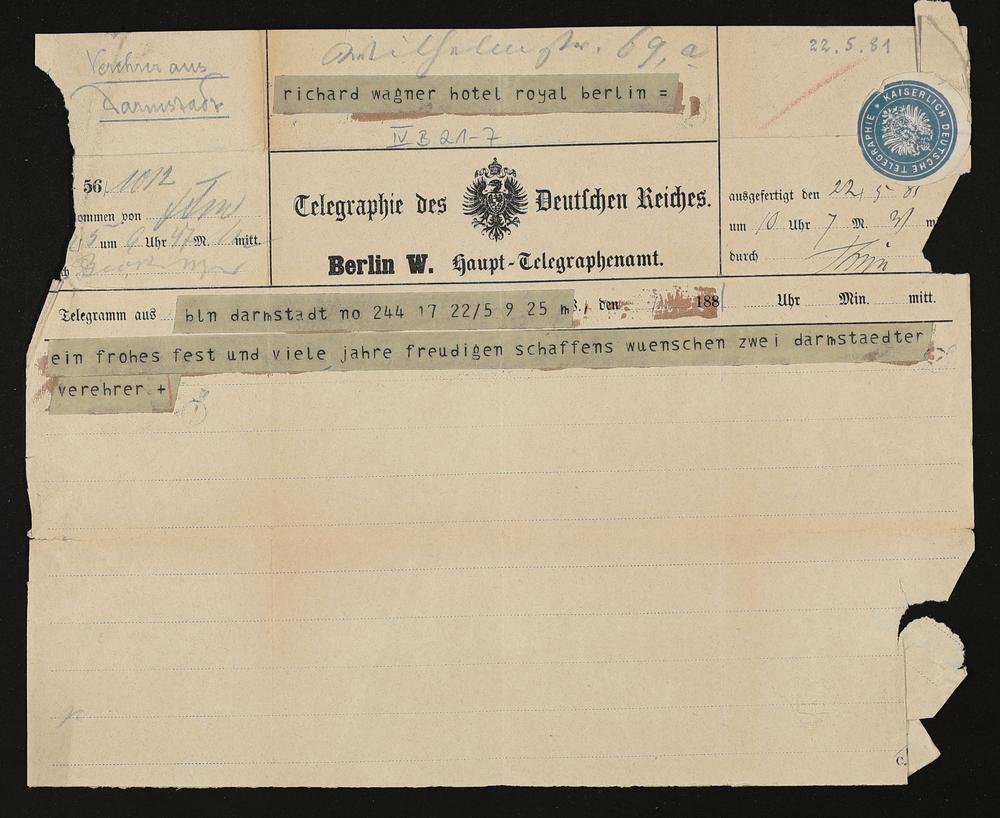 Verehrer aus
Darmstadt
Wilhelmstr. 69, a
22.5.81
richard wagner hotel royal berlin =
IV B 21-7
KAISERLICH DEUTSCHE TELEGRAPHIE
56/ 1012
ommen von
um Uhr 47 M. mitt.
Telegraphie des Deutschen Reiches.
Berlin W. Haupt-Telegraphenamt.
ausgefertigt den 22/5 81
um 10 Uhr 7 M. m
durch
Telegramm aus bln darmstadt no 244 17 22/5 9 25 m den 188 Uhr Min. mitt.
ein frohes fest und viele jahre freudigen schaffens wuenschen zwei darmstaedter
verehrer +
c.